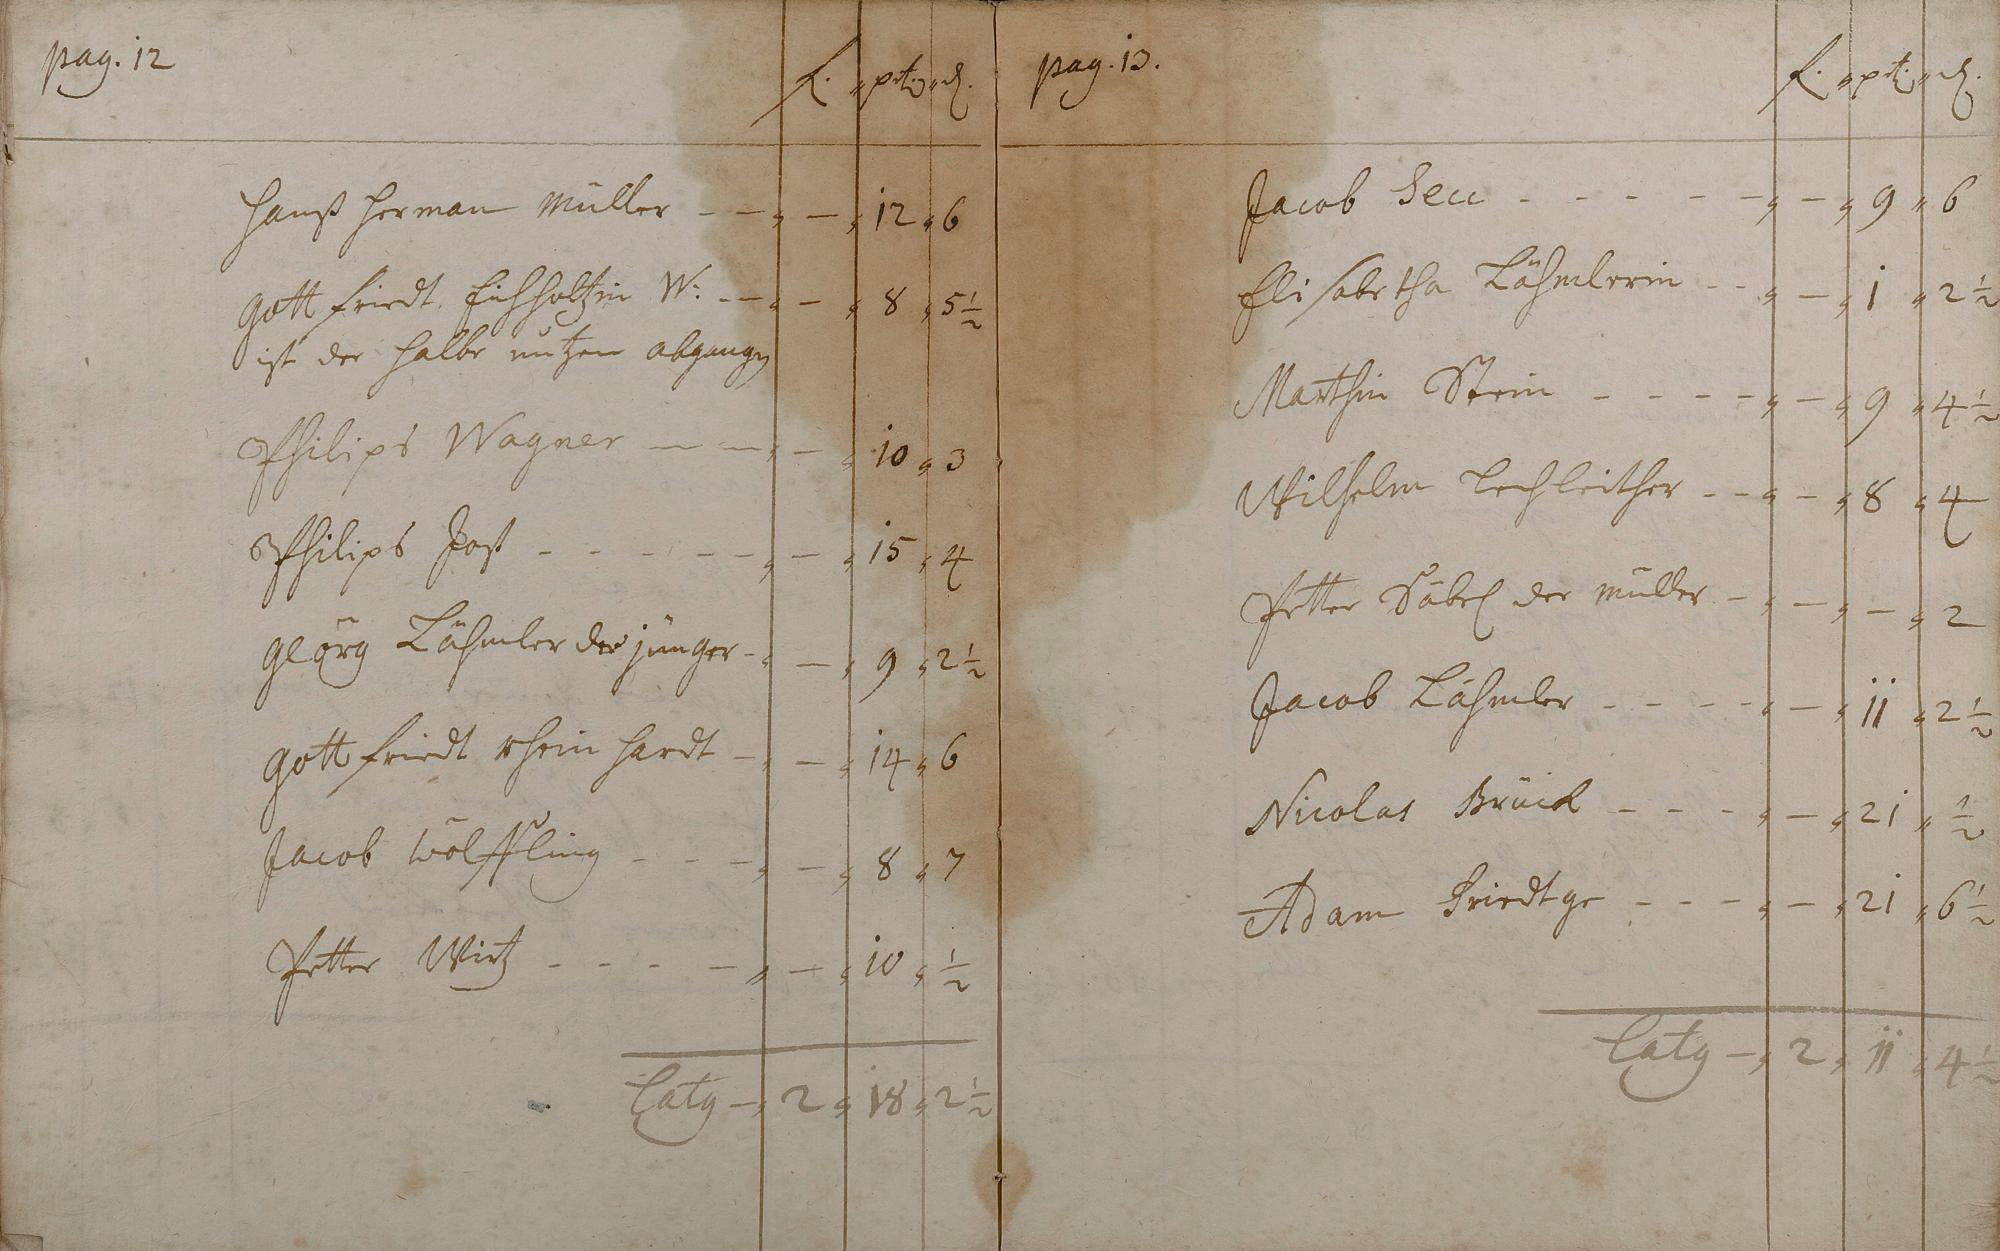 pag. 12
f. „ btz „ d.
Hanß Herman Müller - - „ - „ 12 „ 6
Gottfriedt Eichholtzin W: - - „ - „ 8 „ 5 1/2
ist der halbe nutzen abgangen
Philips Wagner - - „ - „ 10 „ 3
Philips Jost - - - - - - „ - „ 15 „ 4
Geörg Lähmler der jünger - „ - „ 9 „ 2 1/2
Gottfriedt Rheinhardt - „ - „ 14 „ 6
Jacob Wölffling - - - - „ - „ 8 „ 7
Petter Wirtz - - - - „ - „ 10 „ 1/2
Latq - „ 2 „ 18 „ 2 1/2
pag. 13.
f. „ btz „ d.
Jacob - - - - - - „ - „ 9 „ 6
Elisabetha Lähmlerin - - „ - „ 1 „ 2 1/2
Marthin Stein - - - - - „ - „ 9 „ 4 1/2
Wilhelm Lechleither - - „ - „ 8 „ 4
Petter Däbel der müller - „ - „ - „ 2
Jacob Lähmler - - - - „ - „ 11 „ 2 1/2
Nicolas Brück - - - - „ - „ 21 „ 1/2
Adam Friedtge - - - - „ - „ 21 „ 6 1/2
Latq - „ 2 „ 11 „ 4 1/2